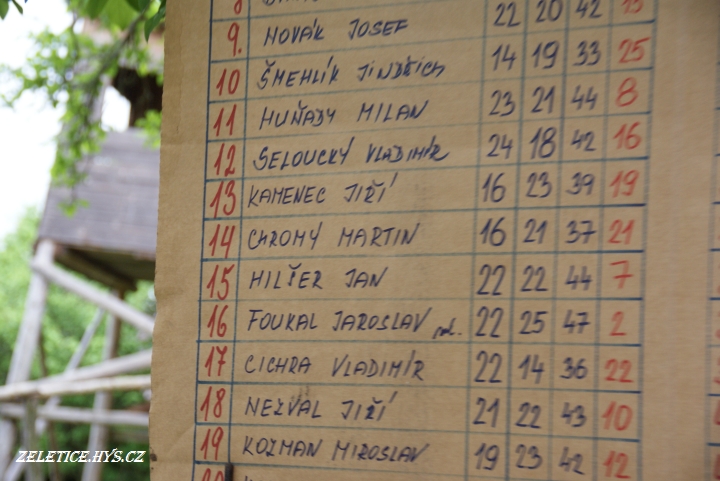 22 20 42
9. NOVÁK JOSEF 14 19 33 25
10 ŠMEHLÍK JINDŘICH 23 21 44 8
11 HUŇADY MILAN 24 18 42 16
12 SELOUCKÝ VLADIMÍR 16 23 39 19
13 KAMENEC JIŘÍ 16 21 37 21
14 CHROMÝ MARTIN 22 22 44 7
15 HILŠER JAN 22 25 47 2
16 FOUKAL JAROSLAV 22 14 36 22
17 CICHRA VLADIMÍR 21 22 43 10
18 NEZVAL JIŘÍ 19 23 42 12
19 KOZMAN MIROSLAV
ZELETICE.HYS.CZ